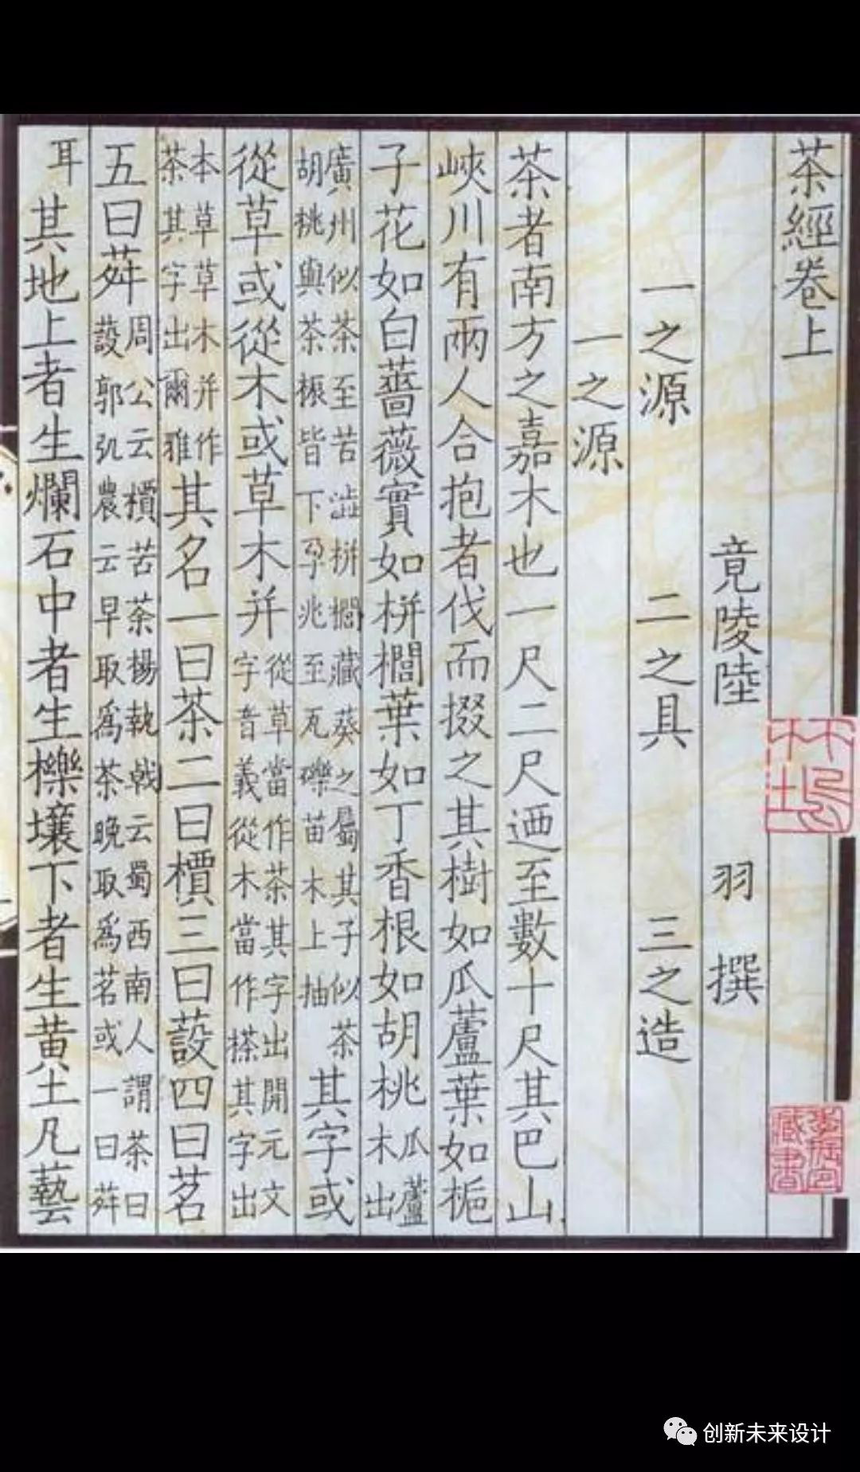 茶經卷上
竟陵陸 羽 撰
一之源 二之具 三之造
一之源
茶者南方之嘉木也一尺二尺迺至數十尺其巴山
峽川有兩人合抱者伐而掇之其樹如瓜蘆葉如梔
子花如白薔薇實如栟櫚葉如丁香根如胡桃瓜蘆木出
廣州似茶至苦澁栟櫚藏葵之屬其子似茶胡桃與茶根皆下孕兆至瓦礫苗木上抽其字或
從草或從木或草木并從草當作茶其字出開元文字音義從木當作搽其字出
本草草木并作茶其字出爾雅其名一曰茶二曰檟三曰蔎四曰茗
五曰荈周公云檟苦茶楊執戟云蜀西南人謂茶曰蔎郭弘農云早取爲茶晚取爲茗或一曰荈
耳其地上者生爛石中者生櫟壤下者生黄土凡藝
藏書
创新未来设计